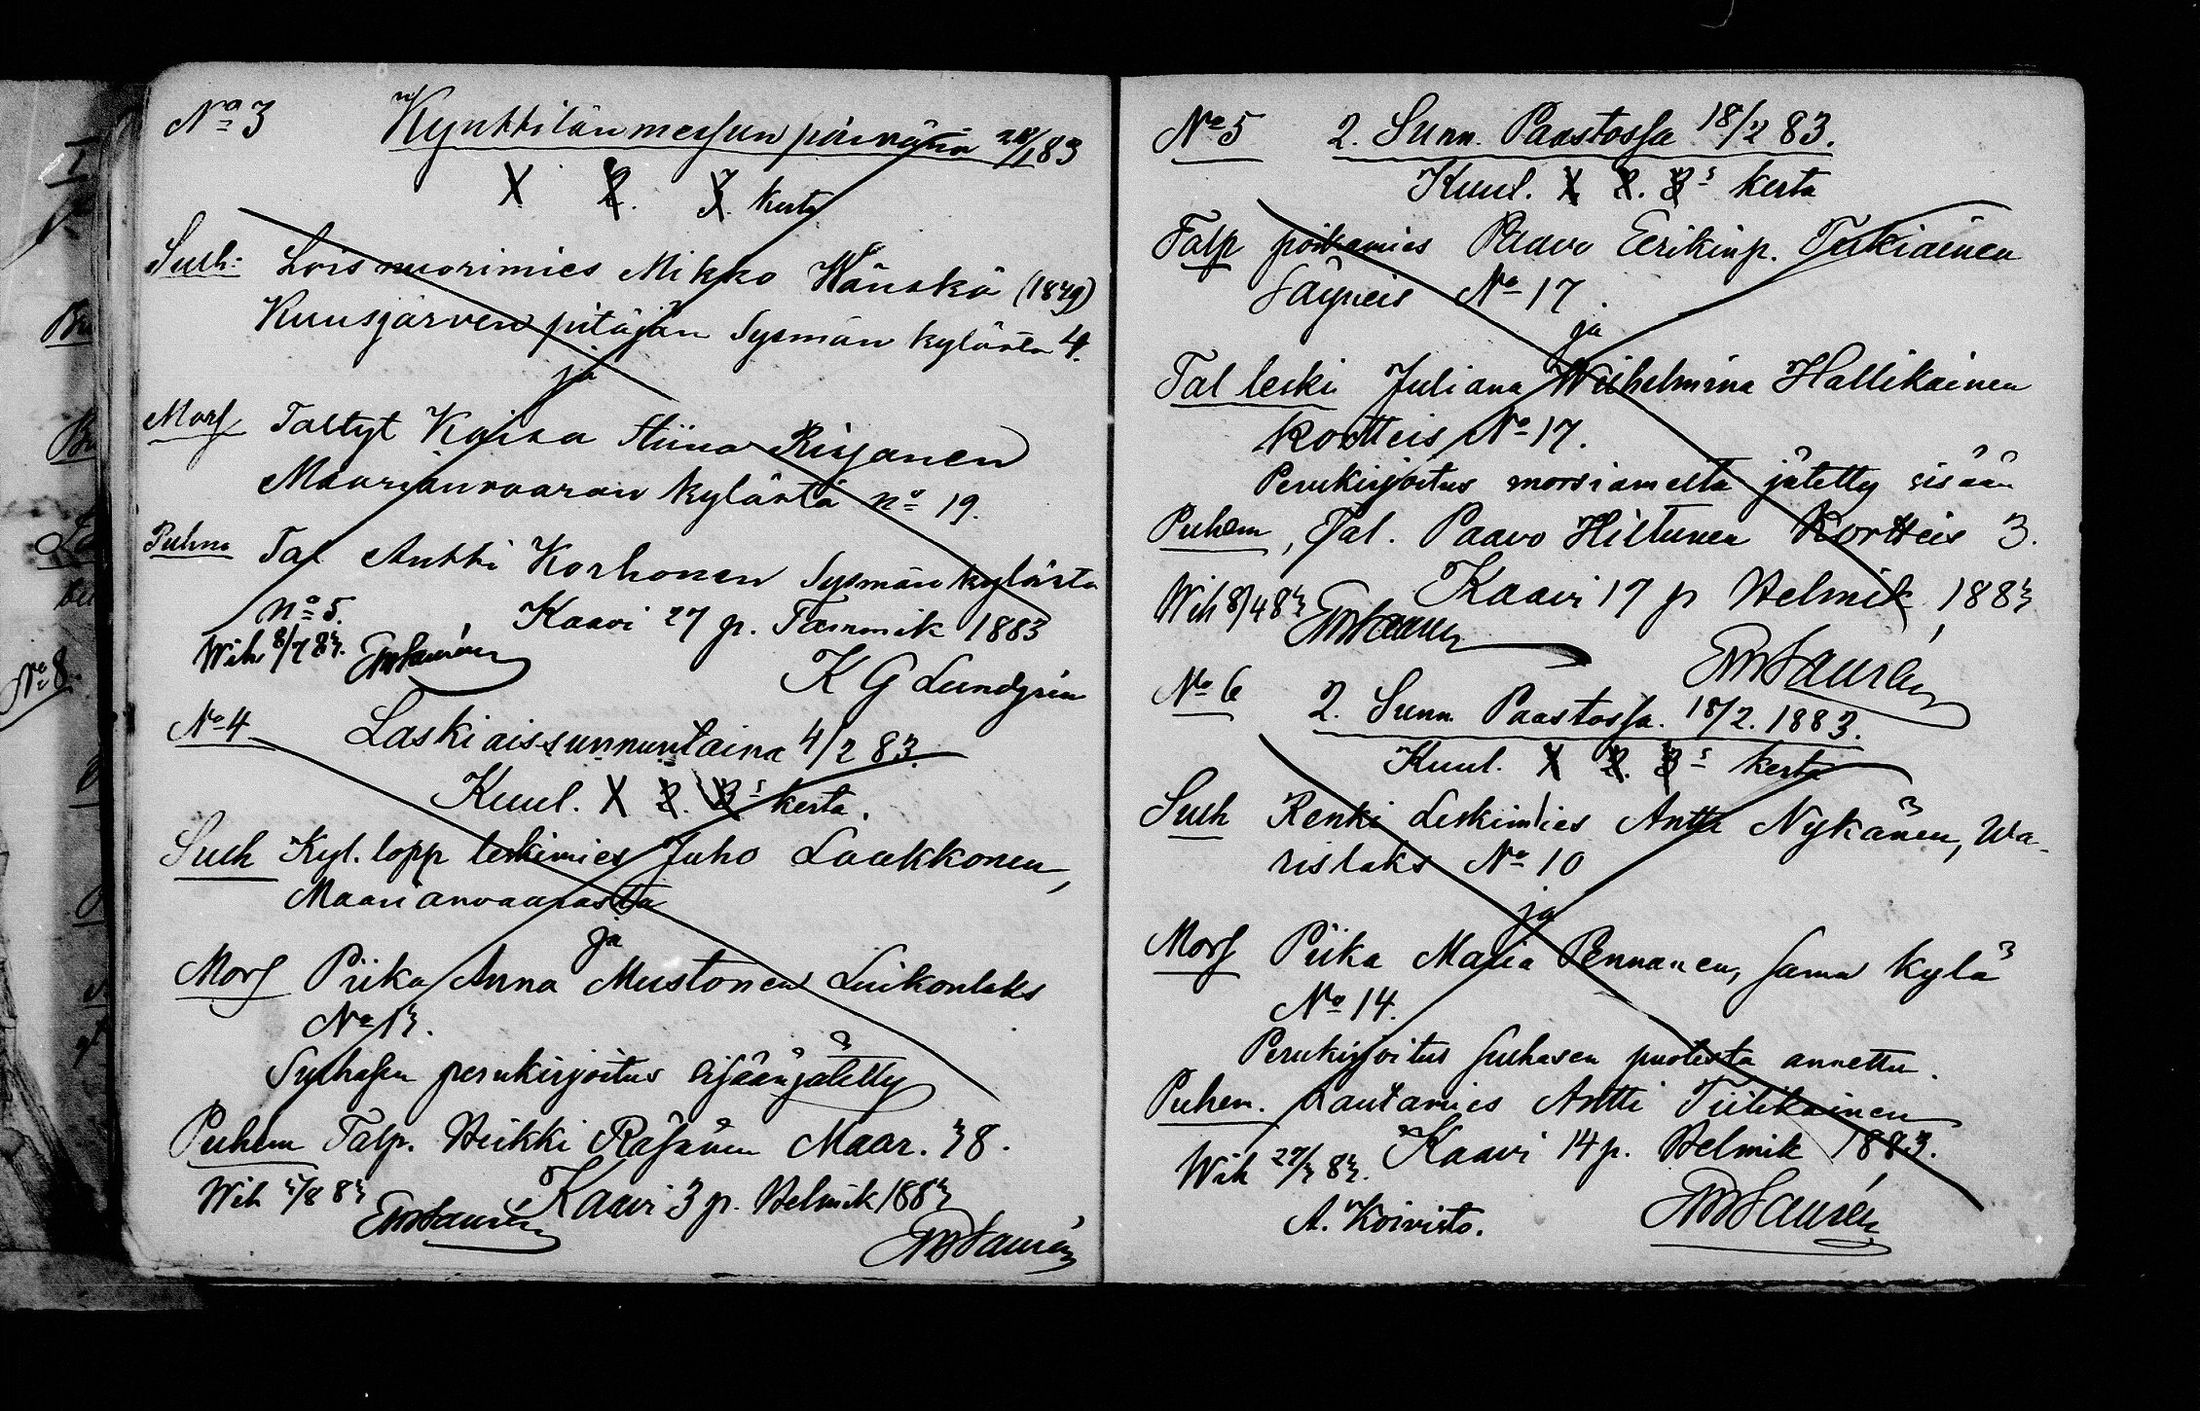 No 3 Kynttilänmessun päivänä 28/1 83
X 2. 3. kerta
Sulh: Lois nuorimies Mikko Hänskä (1849)
Kuusjärven pitäjän Sysmän kylästä 4.
ja
Mors Taltyt Kaisa Stiina Risjanen
Maarianvaaran kylästä no 19.
Puhm Tal Antti Korhonen Sysmän kylästä
no 5. Kaavi 27 p. Tammik 1883
Wih. 8/7 83.
K G Lundgrén
No 4 Laskiaissunnuntaina 4/2 83.
Kuul. X 2. 3s kerta.
Sulh Kyl. lopp leskimies Juho Laakkonen,
Maarianvaarasta
ja
Mors Piika Anna Mustonen Luikonlaks
No 13.
Sulhasen perukirjoitus sisäänjätetty
Puhem Talp. Heikki Räsänen Maar. 38.
Wih 83 Kaavi 3 p. Helmik 1883
No 5 2. Sunn. Paastossa 18/2 83.
Kuul. X 2. 3s kerta
Talp poikamies Paavo Eerikinp. Tukiainen
Säyneis No 17.
ja
Tal leski Juliana Wilhelmina Hallikainen
Kortteis No 17.
Perukirjoitus morsiamelta jätetty sisään
Puhem, Tal. Paavo Hiltunen Kortteis 3.
Wih 8/4 83 Kaavi 17 p Helmik 1883
No 6 2. Sunn. Paastossa. 18/2. 1883.
Kuul. X 2. 3s kerta
Sulh Renki Leskimies Antti Nykänen, Wa-
rislaks No 10
ja
Mors Piika Maria Pennanen, sama kylä
No 14.
Perukirjoitus sulhasen puolesta annettu.
Puhem. Lautamies Antti Tiilikainen
Wih 27/3 83. Kaavi 14 p. Helmik 1883.
A. Koivisto.
No 8